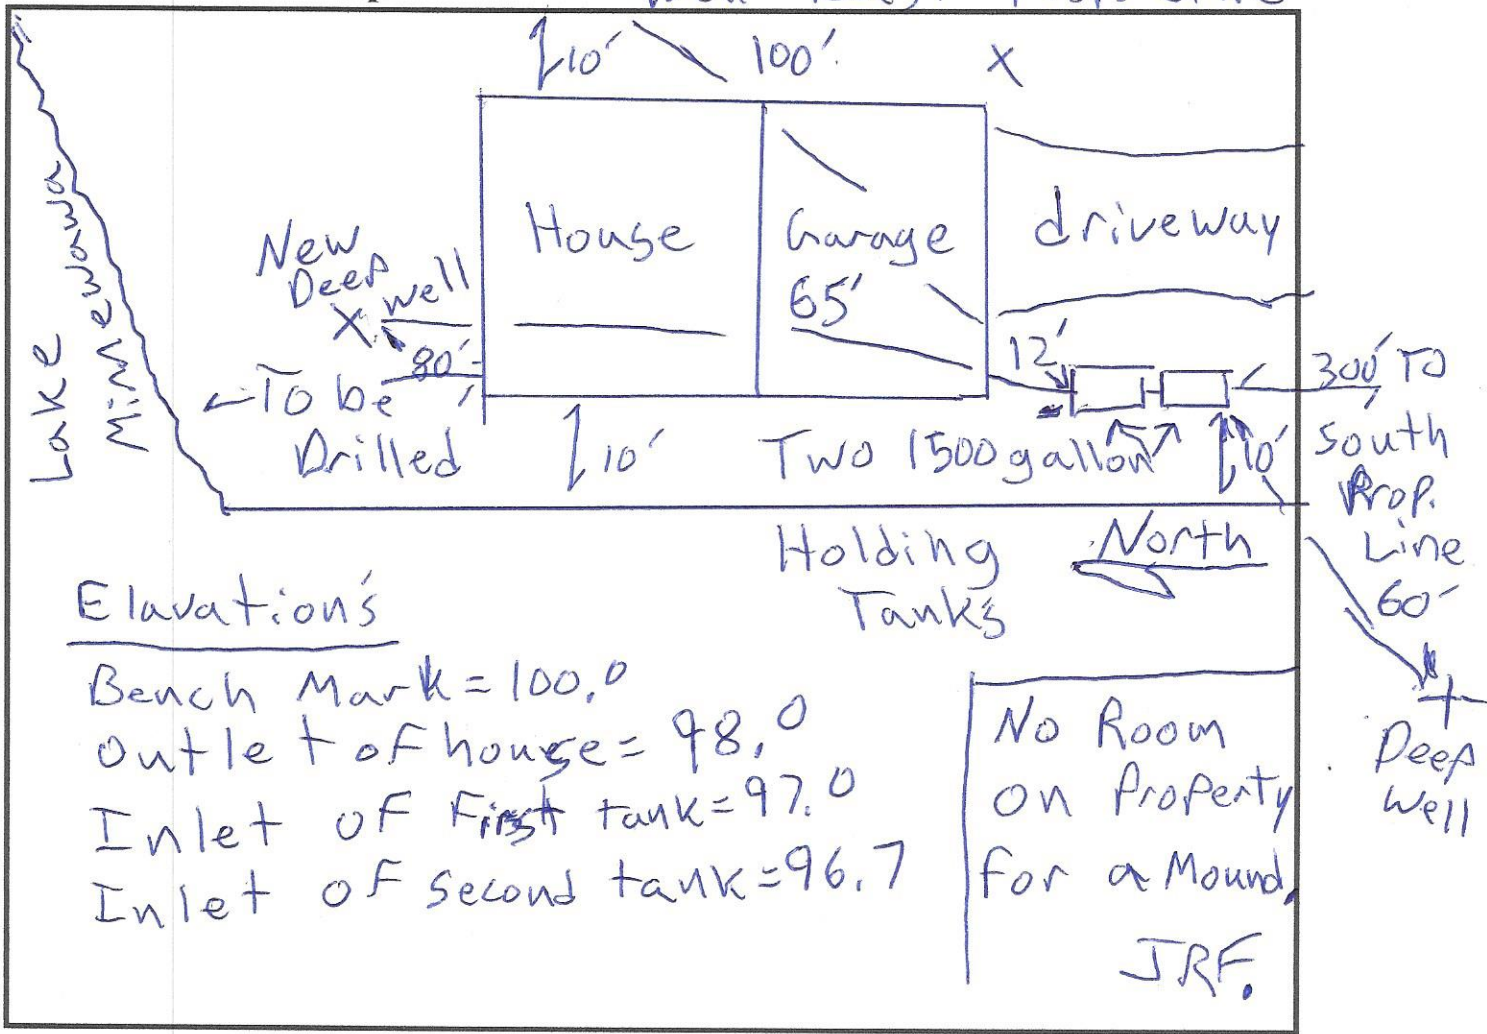 10'
100'
X
House
Garage
65'
driveway
New
Deep
well
X
80'
To be
Drilled
Lake
Minnewawa
12'
300' To
South
Prop.
Line
60'
10'
Two 1500 gallon
10'
Holding
Tanks
North
Deep
Well
Elavation's
Bench Mark = 100.0
Outlet of house = 98.0
Inlet of First tank = 97.0
Inlet of second tank = 96.7
No Room
on Property
for a Mound.
JRF.